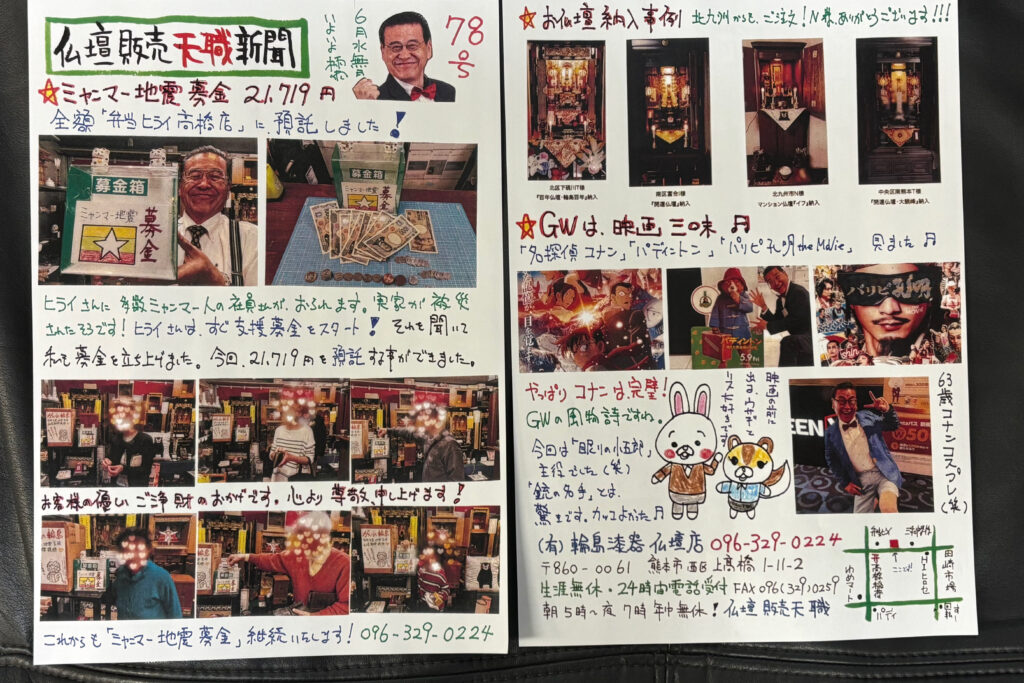 仏壇販売天職新聞
6月水無月
いよいよ梅雨
78号
☆ミャンマー地震募金 21,719円
全額「弁当ヒライ高橋店」に、預託しました!
募金箱
ミャンマー地震
募金
募金箱
ミャンマー地震
ヒライさんに多数ミャンマー人の社員さんが、おられます。実家が被災
されたそうです!ヒライさんは、すぐ支援募金をスタート!それを聞いて
私も募金を立ち上げました。今回、21,719円を預託する事ができました。
お客様の優しいご浄財のおかげです。心より尊敬申し上げます!
これからも「ミャンマー地震募金」継続いたします! 096-329-0224
☆お仏壇納入事例 北九州からも、ご注文!N様、ありがとうございます!!!
北区下硯川T様
『百年仏壇・輪島百年』納入
南区富合I様
『開運仏壇』納入
北九州市N様
マンション仏壇『イフ』納入
中央区南熊本T様
『開運仏壇・大観峰』納入
☆GWは、映画三昧♬
「名探偵コナン」「パディントン」「パリピ孔明 the Movie」見ました♬
パディントン
5.9
パリピ孔明
やっぱりコナンは、完璧!
GWの風物詩ですね。
今回は「眠りの小五郎」
主役でした(笑)
「銃の名手」とは、
驚きです。カッコよかった♬
映画の前に
出る、ウサギと
リス大好きです
63歳コナンコスプレ(笑)
(有)輪島漆器仏壇店 096-329-0224
〒860-0061 熊本市西区上高橋1-11-2
生涯無休・24時間電話受付 FAX 096(329)0259
朝5時~夜7時年中無休!仏壇販売天職
ここだよ
田崎市場